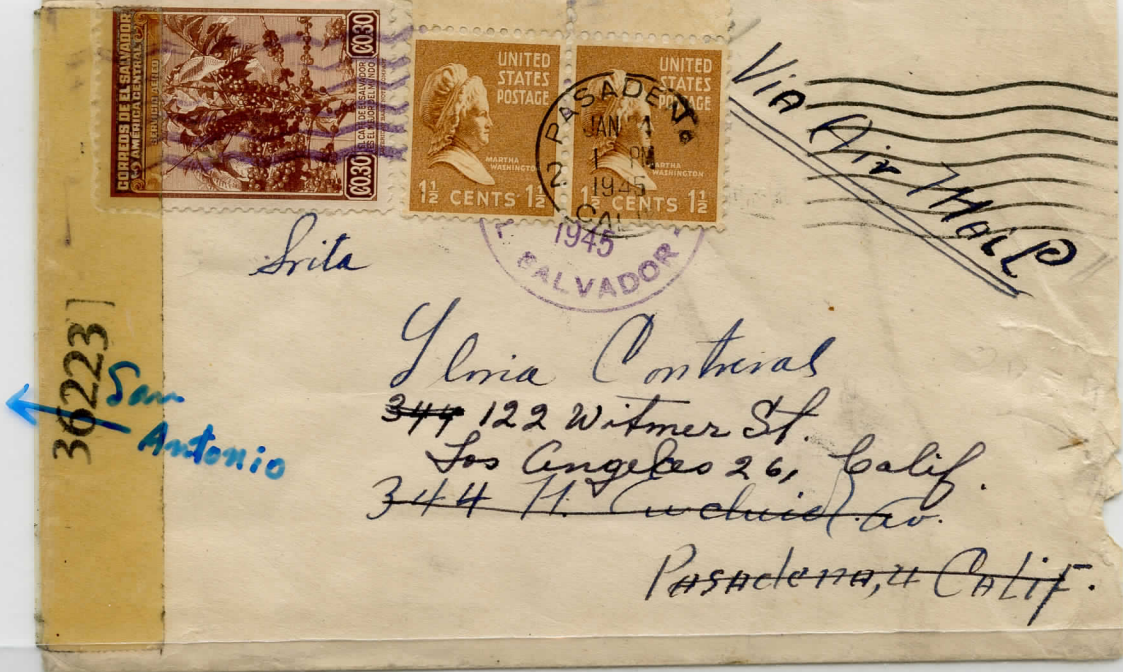 CORREOS DE EL SALVADOR
AMERICA CENTRAL
SERVICIO AEREO
₡0.30
₡0.30
EL CAFE DE EL SALVADOR
ES EL MEJOR DEL MUNDO
UNITED
STATES
POSTAGE
MARTHA
WASHINGTON
1½ CENTS 1½
UNITED
STATES
POSTAGE
MARTHA
WASHINGTON
1½ CENTS 1½
PASADENA
JAN 4
1 PM
1945
CALIF
2
1945
SALVADOR
Via Air Mail
Srita
Gloria Contreras
344 122 Witmer St.
Los Angeles 26, Calif.
344 N. Eucluid Av.
Pasadena, 4 Calif.
36223
San
Antonio